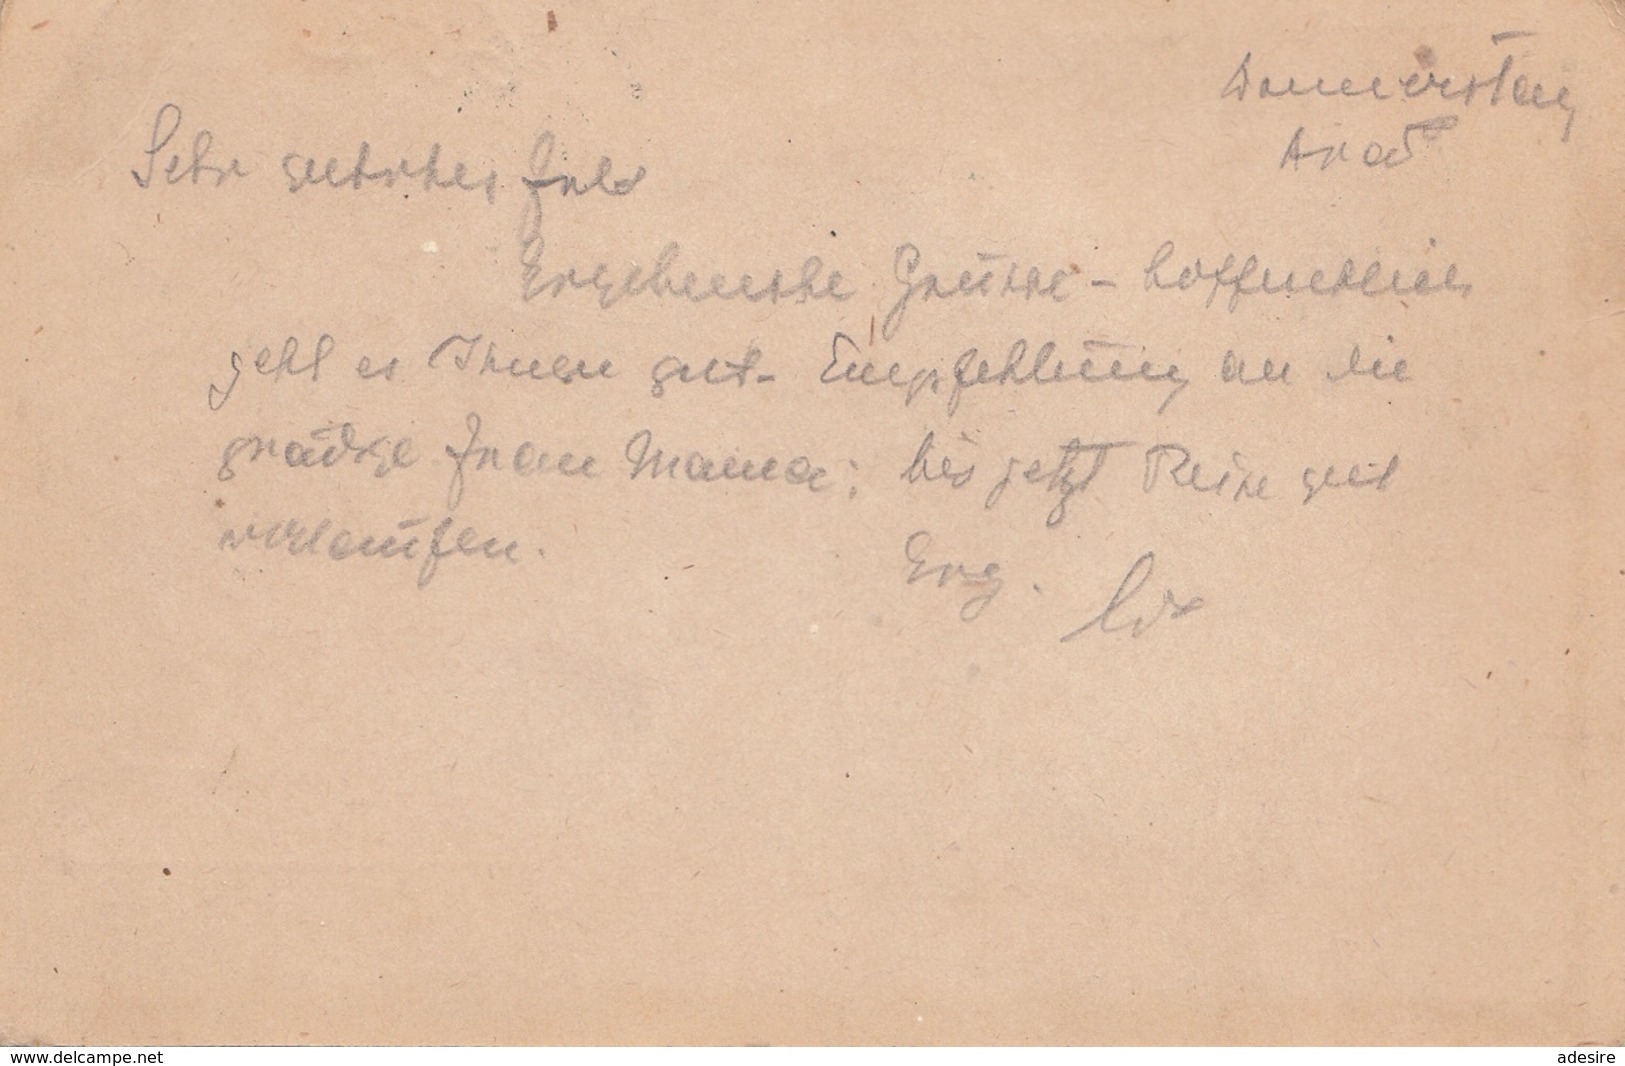 Donnerstag
Arad
Sehr geehrtes Frl
Ergebenste Grüsse - hoffentlich
geht es Ihnen gut - Empfehlung an die
gnädige Frau Mama; bis jetzt Reise gut
verlaufen.
Erg.
www.delcampe.net
adesire